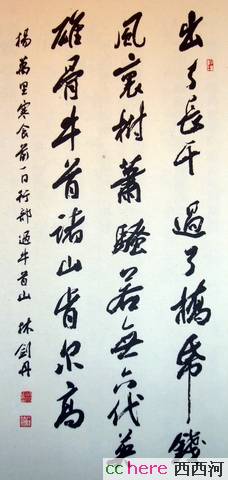 出了長干過了橋帋錢
風裏樹蕭騷若無六代英
雄骨牛首諸山肯尔高
楊萬里寒食前一日行部過牛首山 林剑丹
cchere 西西河